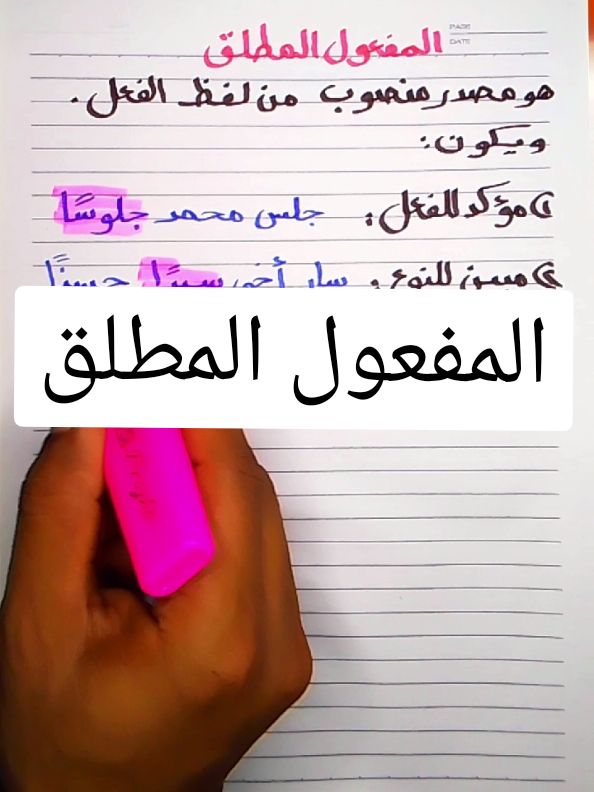 PAGE
DATE
المفعول المطلق
هو مصدر منصوب من لفظ الفعل.
ويكون:
١) مؤكد للفعل: جلس محمد جلوسًا
٢) مبين للنوع: سار أخي سيرًا حسنًا
المفعول المطلق